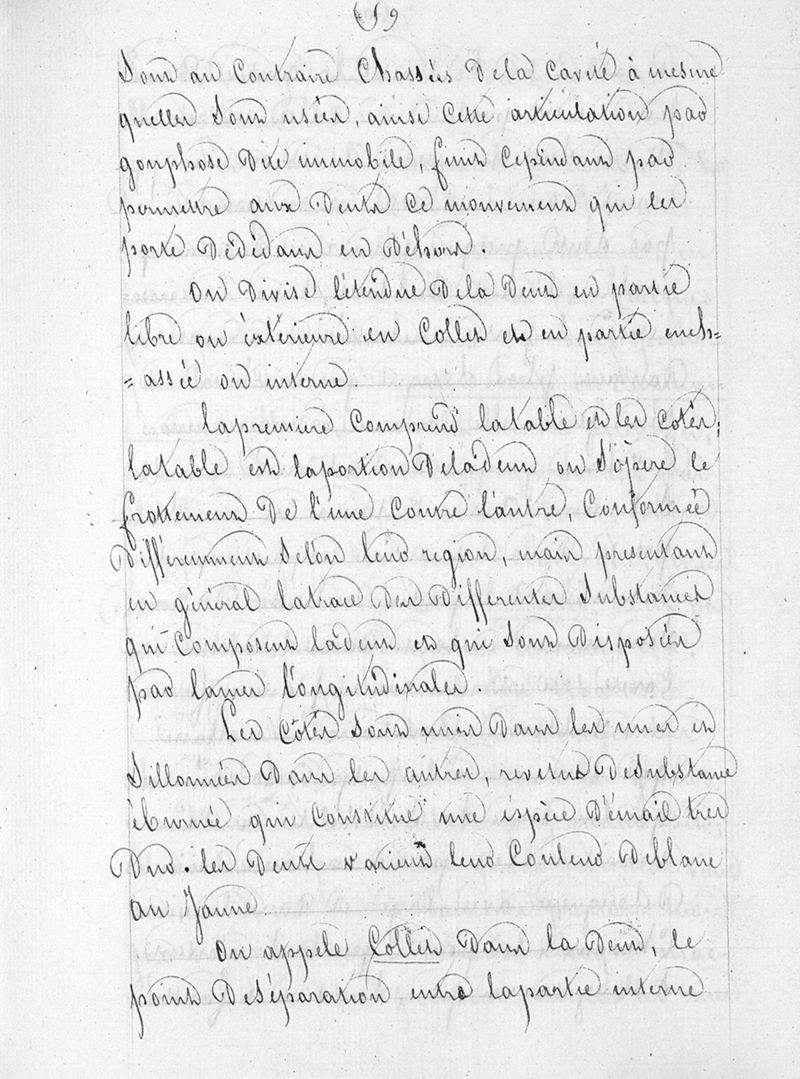 59
Sont au Contraire Chassées De la Cavité à mesure
quelles Sont usées, ainsi Cette articulation par
gomphose Dite immobile, finit Cependant par
permettre aux Dents Ce mouvement qui les
porte Dédédans en Déhors.
On Divise l'étendue De la Dent en partie
libre ou éxtérieure en Collet et en partie ench=
=assée ou interne.
la première Comprend la table et les Cotés;
la table est la portion De la dent ou S'opère le
frottement De l'une Contre l'autre, Conformée
Différemment Selon leur region, mais présentant
en général la trace Des Differentes Substances
qui Composent la dent et qui Sont Disposées
par lames longitudinales
Les Côtés Sont unis Dans les unes et
Sillonnées Dans les autres, revetus De Substance
éburnée qui Constitue une éspèce D'émail tres
Dur. les Dents varient leur Couleur De blanc
au Jaune
On appele Collet Dans la Dent, le
point De Séparation entre la partie interne